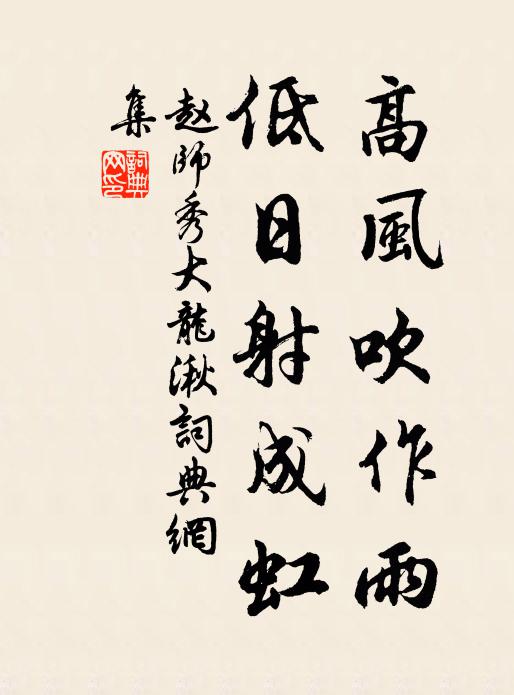 高風吹作雨
低日射成虹
赵師秀大龍湫詞典網
集
詞典
网印